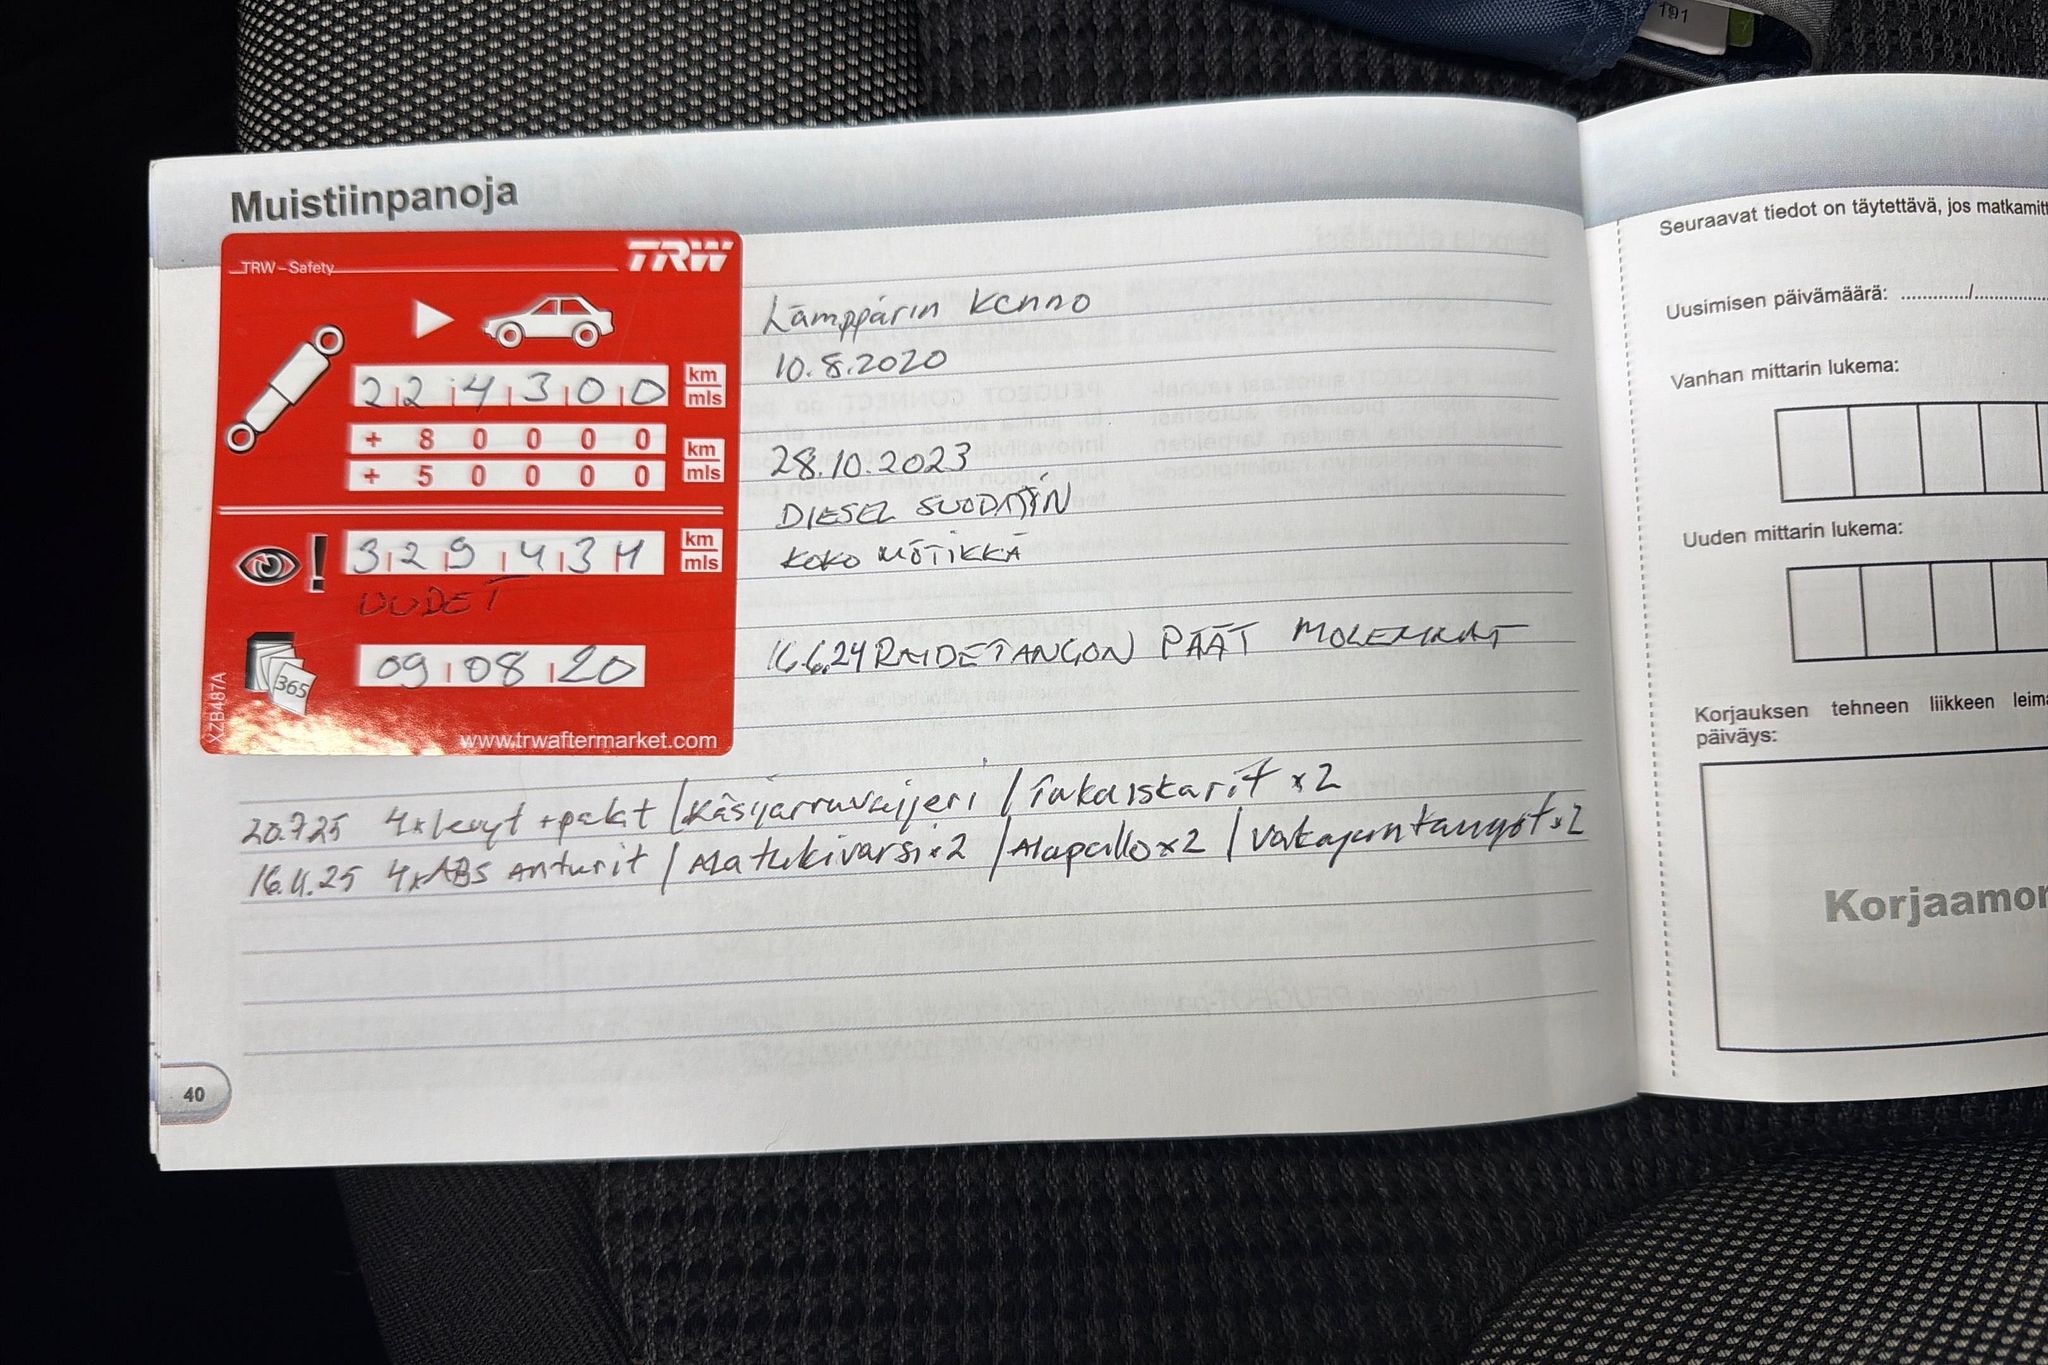 191
Muistiinpanoja
TRW-Safety
TRW
224300 km mls
+ 8 0 0 0 0 km
+ 5 0 0 0 0 mls
! 329434 km mls
UUDET
365
09 08 20
XZB487A
www.trwaftermarket.com
Lämppärin Kenno
10.8.2020
28.10.2023
DIESEL SUODATIN
KOKO MÖTIKKÄ
16.6.24 RAIDETANGON PÄÄT MOLEMMAT
20.7.25 4x levyt + palat / Käsijarruvaijeri / Takaiskarit x2
16.11.25 4xABS Anturit / Alatukivarsi x2 / Alapallo x2 / Vakajantangot x2
40
Seuraavat tiedot on täytettävä, jos matkamitt
Uusimisen päivämäärä: ............./................
Vanhan mittarin lukema:
Uuden mittarin lukema:
Korjauksen tehneen liikkeen leima
päiväys:
Korjaamon